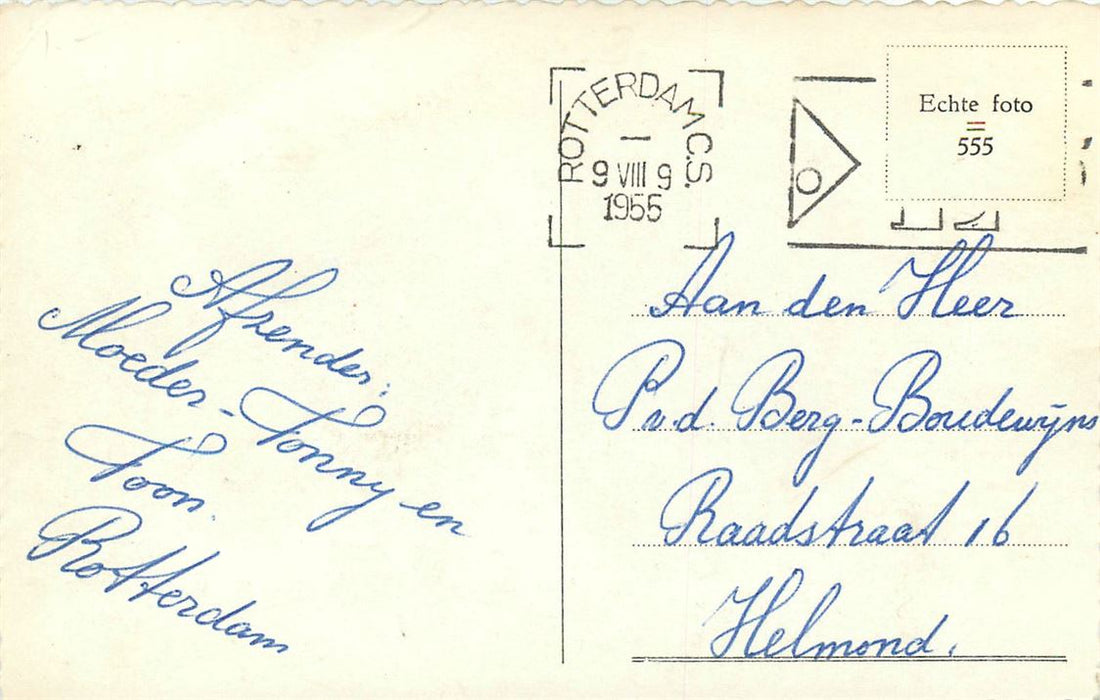 ROTTERDAM C.S.
9 VIII 9
1955
Echte foto
=
555
Afzender:
Moeder - Tonny en
Toon.
Rotterdam
Aan den Heer
P.v.d. Berg-Boudewijns
Raadstraat 16
Helmond.